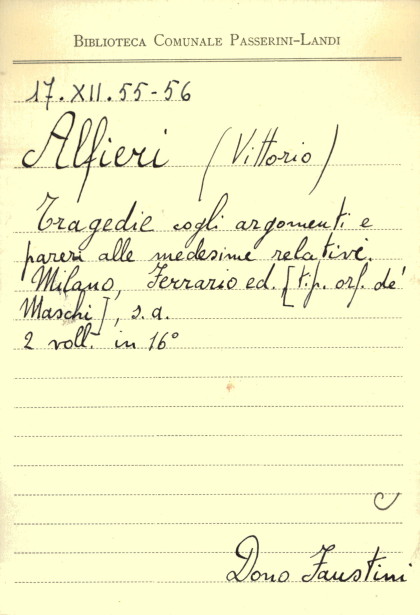 BIBLIOTECA COMUNALE PASSERINI-LANDI
17.XII.55-56
Alfieri (Vittorio)
Tragedie cogli argomenti e
pareri alle medesime relative.
Milano, Ferrario ed. [tip. orf. de'
Maschi], s.a.
2 voll. in 16°
Dono Faustini